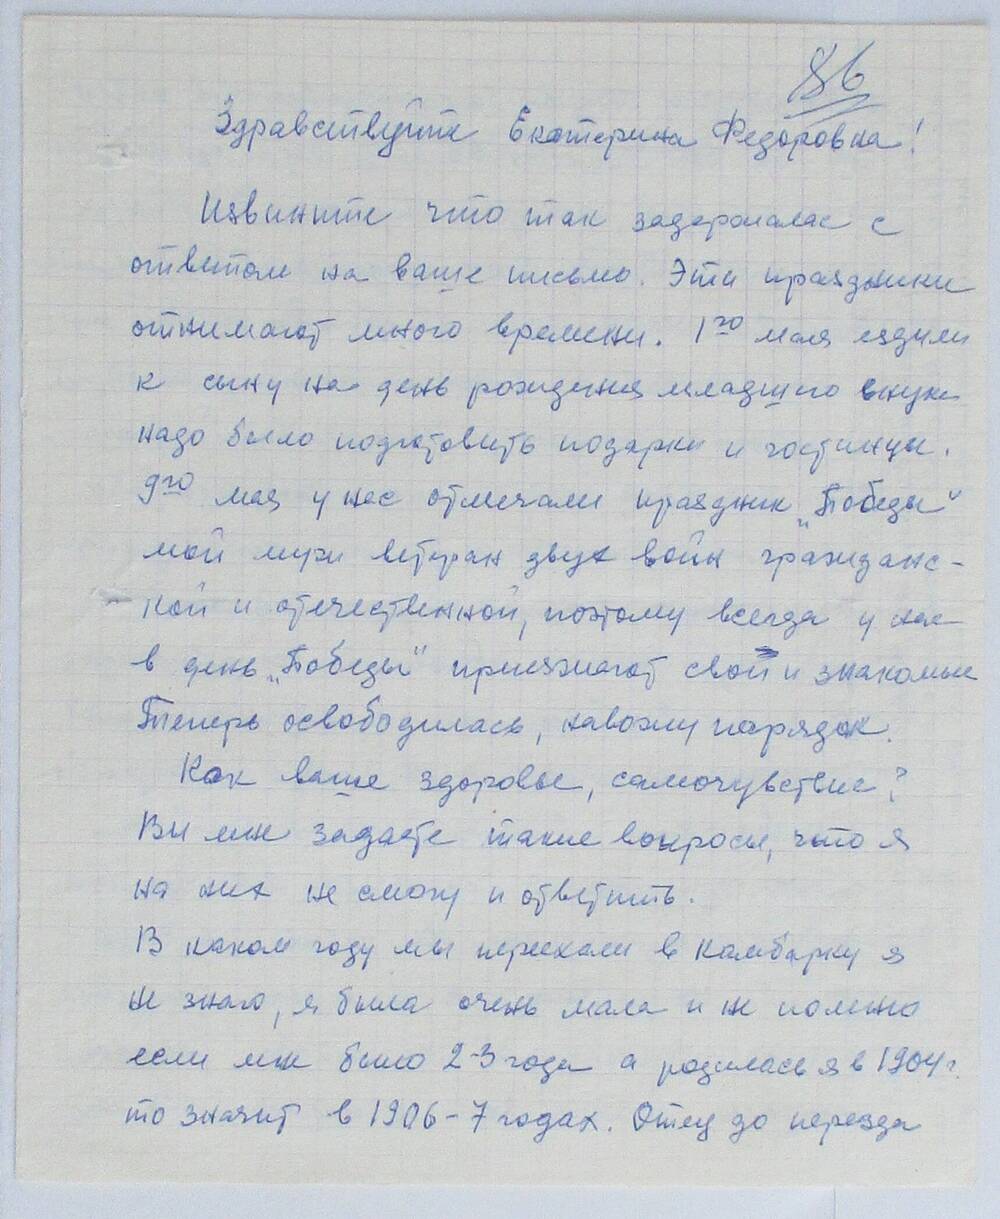 86
Здравствуйте Екатерина Федоровна!
Извините что так задержалас с
ответом на ваше письмо. Эти праздники
отнимают много времени. 1го мая ездили
к сыну на день рождения младшего внука
надо было подготовить подарки и гостинцы.
9го мая у нас отмечали праздник „Победы"
мой муж ветеран двух войн гражданс-
кой и отечественной, поэтому всегда у нас
в день „Победы" приезжают свои и знакомые
Теперь освободилась, навожу порядок.
Как ваше здоровье, самочувствие?
Вы мне задаете такие вопросы, что я
на них не смогу и ответить.
В каком году мы переехали в Камбарку я
не знаю, я была очень мала и не помню
если мне было 2-3 года а родилась я в 1904 г.
то значит в 1906-7 годах. Отец до переезда